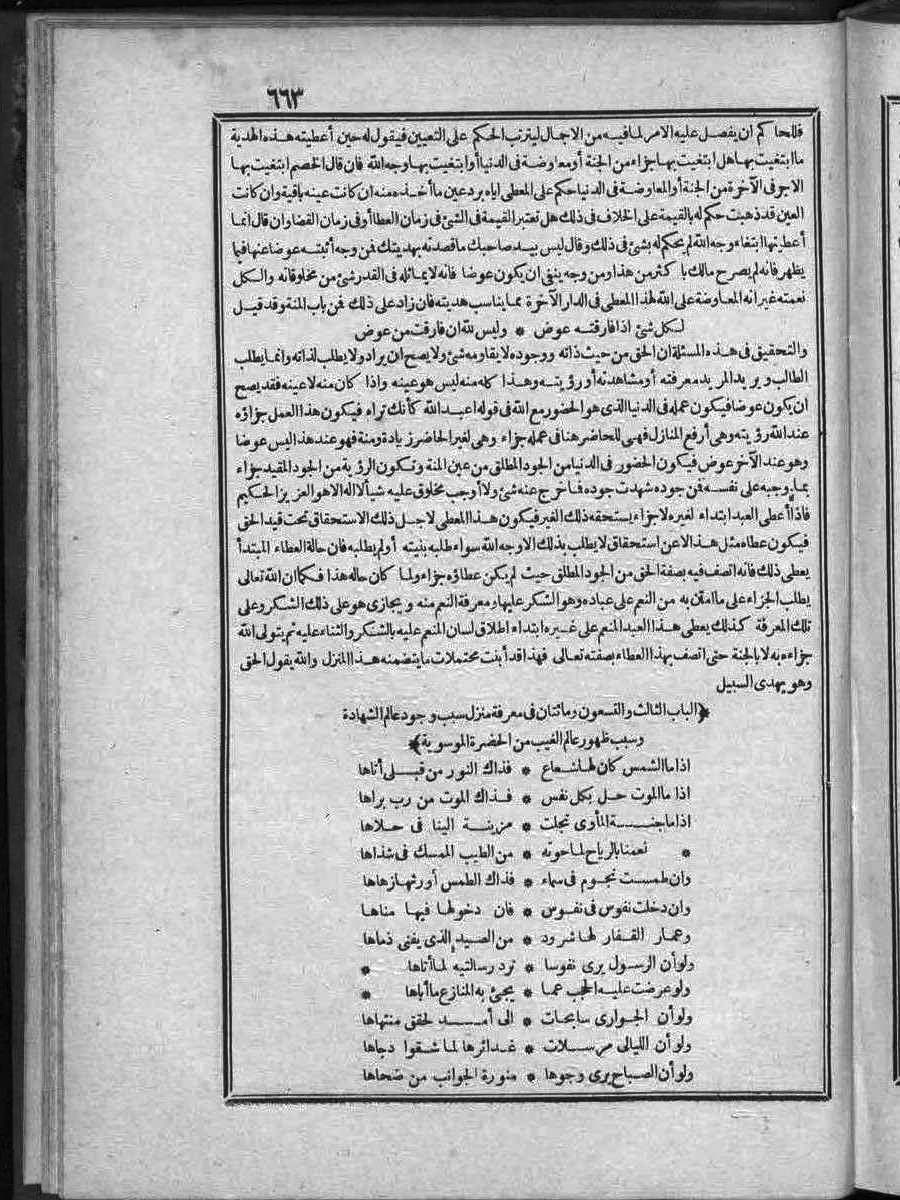 ٦٦٣
فللحاكم ان يفصل عليه الامر لما فيه من الاجمال ليترتب الحكم على التعيين فيقول له حين أعطيته هذه الهدية
ما ابتغيت بها هل ابتغيت بها جزاء من الجنة أو معاوضة فى الدنيا أو ابتغيت بها وجه الله فان قال الخصم ابتغيت بها
الاجر فى الآخرة من الجنة أو المعاوضة فى الدنيا حكم على المعطى اياه برد عين ما أخذه منه ان كانت عينه باقية وان كانت
العين قد ذهبت حكم له بالقيمة على الخلاف فى ذلك هل تعتبر القيمة فى الشئ فى زمان العطا أو فى زمان القضا وان قال انما
أعطيتها ابتغاء وجه الله لم يحكم له بشئ فى ذلك وقال ليس بيد صاحبك ما قصدته بهديتك فمن وجه أثبته عوضا عنها فيما
يظهر فانه لم يصرح مالك باكثر من هذا ومن وجه ينفى ان يكون عوضا فانه لا يماثله فى القدر شئ من مخلوقاته والكل
نعمته غير انه المعاوضة على الله لهذا المعطى فى الدار الآخرة مما يناسب هديته فان زاد على ذلك فمن باب المنة وقد قيل
لكل شئ اذا فارقته عوض * وليس لله ان فارقت من عوض
والتحقيق فى هذه المسئلة ان الحق من حيث ذاته ووجوده لا يقاومه شئ ولا يصح ان يراد ولا يطلب لذاته وانما يطلب
الطالب ويريد المريد معرفته أو مشاهدته أو رؤيته وهذا كله منه ليس هو عينه واذا كان منه لا عينه فقد يصح
ان يكون عوضا فيكون عمله فى الدنيا الذى هو الحضور مع الله فى قوله اعبد الله كأنك تراه فيكون هذا العمل جزاؤه
عند الله رؤيته وهى أرفع المنازل فهى للحاضر هنا فى عمله جزاء وهى لغير الحاضر زيادة ومنة فهو عند هذا ليس عوضا
وهو عند الآخر عوض فيكون الحضور فى الدنيا من الجود المطلق من عين المنة وتكون الرؤية من الجود المقيد جزاء
بما وجبه على نفسه فمن جوده شهدت جوده فما خرج عنه شئ ولا أوجب مخلوق عليه شيأ لا اله الا هو العزيز الحكيم
فاذا أعطى العبد ابتداء لغيره لا جزاء يستحقه ذلك الغير فيكون هذا المعطى لاجل ذلك الاستحقاق تحت قيد الحق
فيكون عطاه مثل هذا لا عن استحقاق لا يطلب بذلك الا وجه الله سواء طلبه بنيته أو لم يطلبه فان حالة العطاء المبتدأ
يعطى ذلك فانه اتصف فيه بصفة الحق من الجود المطلق حيث لم يكن عطاؤه جزاء ولما كان حاله هذا فكما ان الله تعالى
يطلب الجزاء على ما امتن به من النعم على عباده وهو الشكر عليها ومعرفة النعم منه ويجازى هو على ذلك الشكر وعلى
تلك المعرفة كذلك يعطى هذا العبد المنعم على غيره ابتداء اطلاق لسان المنعم عليه بالشكر والثناء عليه ثم يتولى الله
جزاءه به لا بالجنة حتى اتصف بهذا العطاء بصفته تعالى فهذا قد أبنت محتملات ما يتضمنه هذا المنزل والله يقول الحق
وهو يهدى السبيل
﴿الباب الثالث والتسعون ومائتان فى معرفة منزل سبب وجود عالم الشهادة
وسبب ظهور عالم الغيب من الحضرة الموسوية﴾
اذا ما الشمس كان لها شعاع * فذاك النور من قبلى أتاها
اذا ما الموت حل بكل نفس * فذاك الموت من رب براها
اذا ما جنة المأوى تجلت * مزينة الينا فى حلاها
* نعمنا بالرياح لما حوته * من الطيب الممسك فى شذاها
وان طمست نجوم فى سماء * فذاك الطمس أورثها زهاها
وان دخلت نفوس فى نفوس * فان دخولها فيها مناها
وعمار القفار لها شرود * من الصيد الذى يفنى ذماها
ولو أن الرسول يرى نفوسا * ترد رسالتيه لما أتاها *
ولو عرضت عليه الحجب عما * يجئ به المنازع ما أباها *
ولو أن الجوارى سابحات * الى أمد لحقق منتهاها
ولو أن الليالى مرسلات * غدائرها لما شقوا دجاها
ولو أن الصباح يرى وجوها * منورة الجوانب من ضحاها